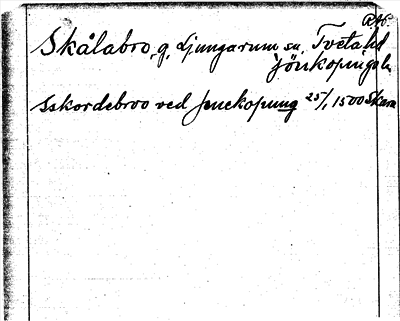 RAp.
Skålabro, g. Ljungarum sn. Tveta hd
Jönköpings l.
Sskordebroo ved Jenekopung 25/1 1500 Skara